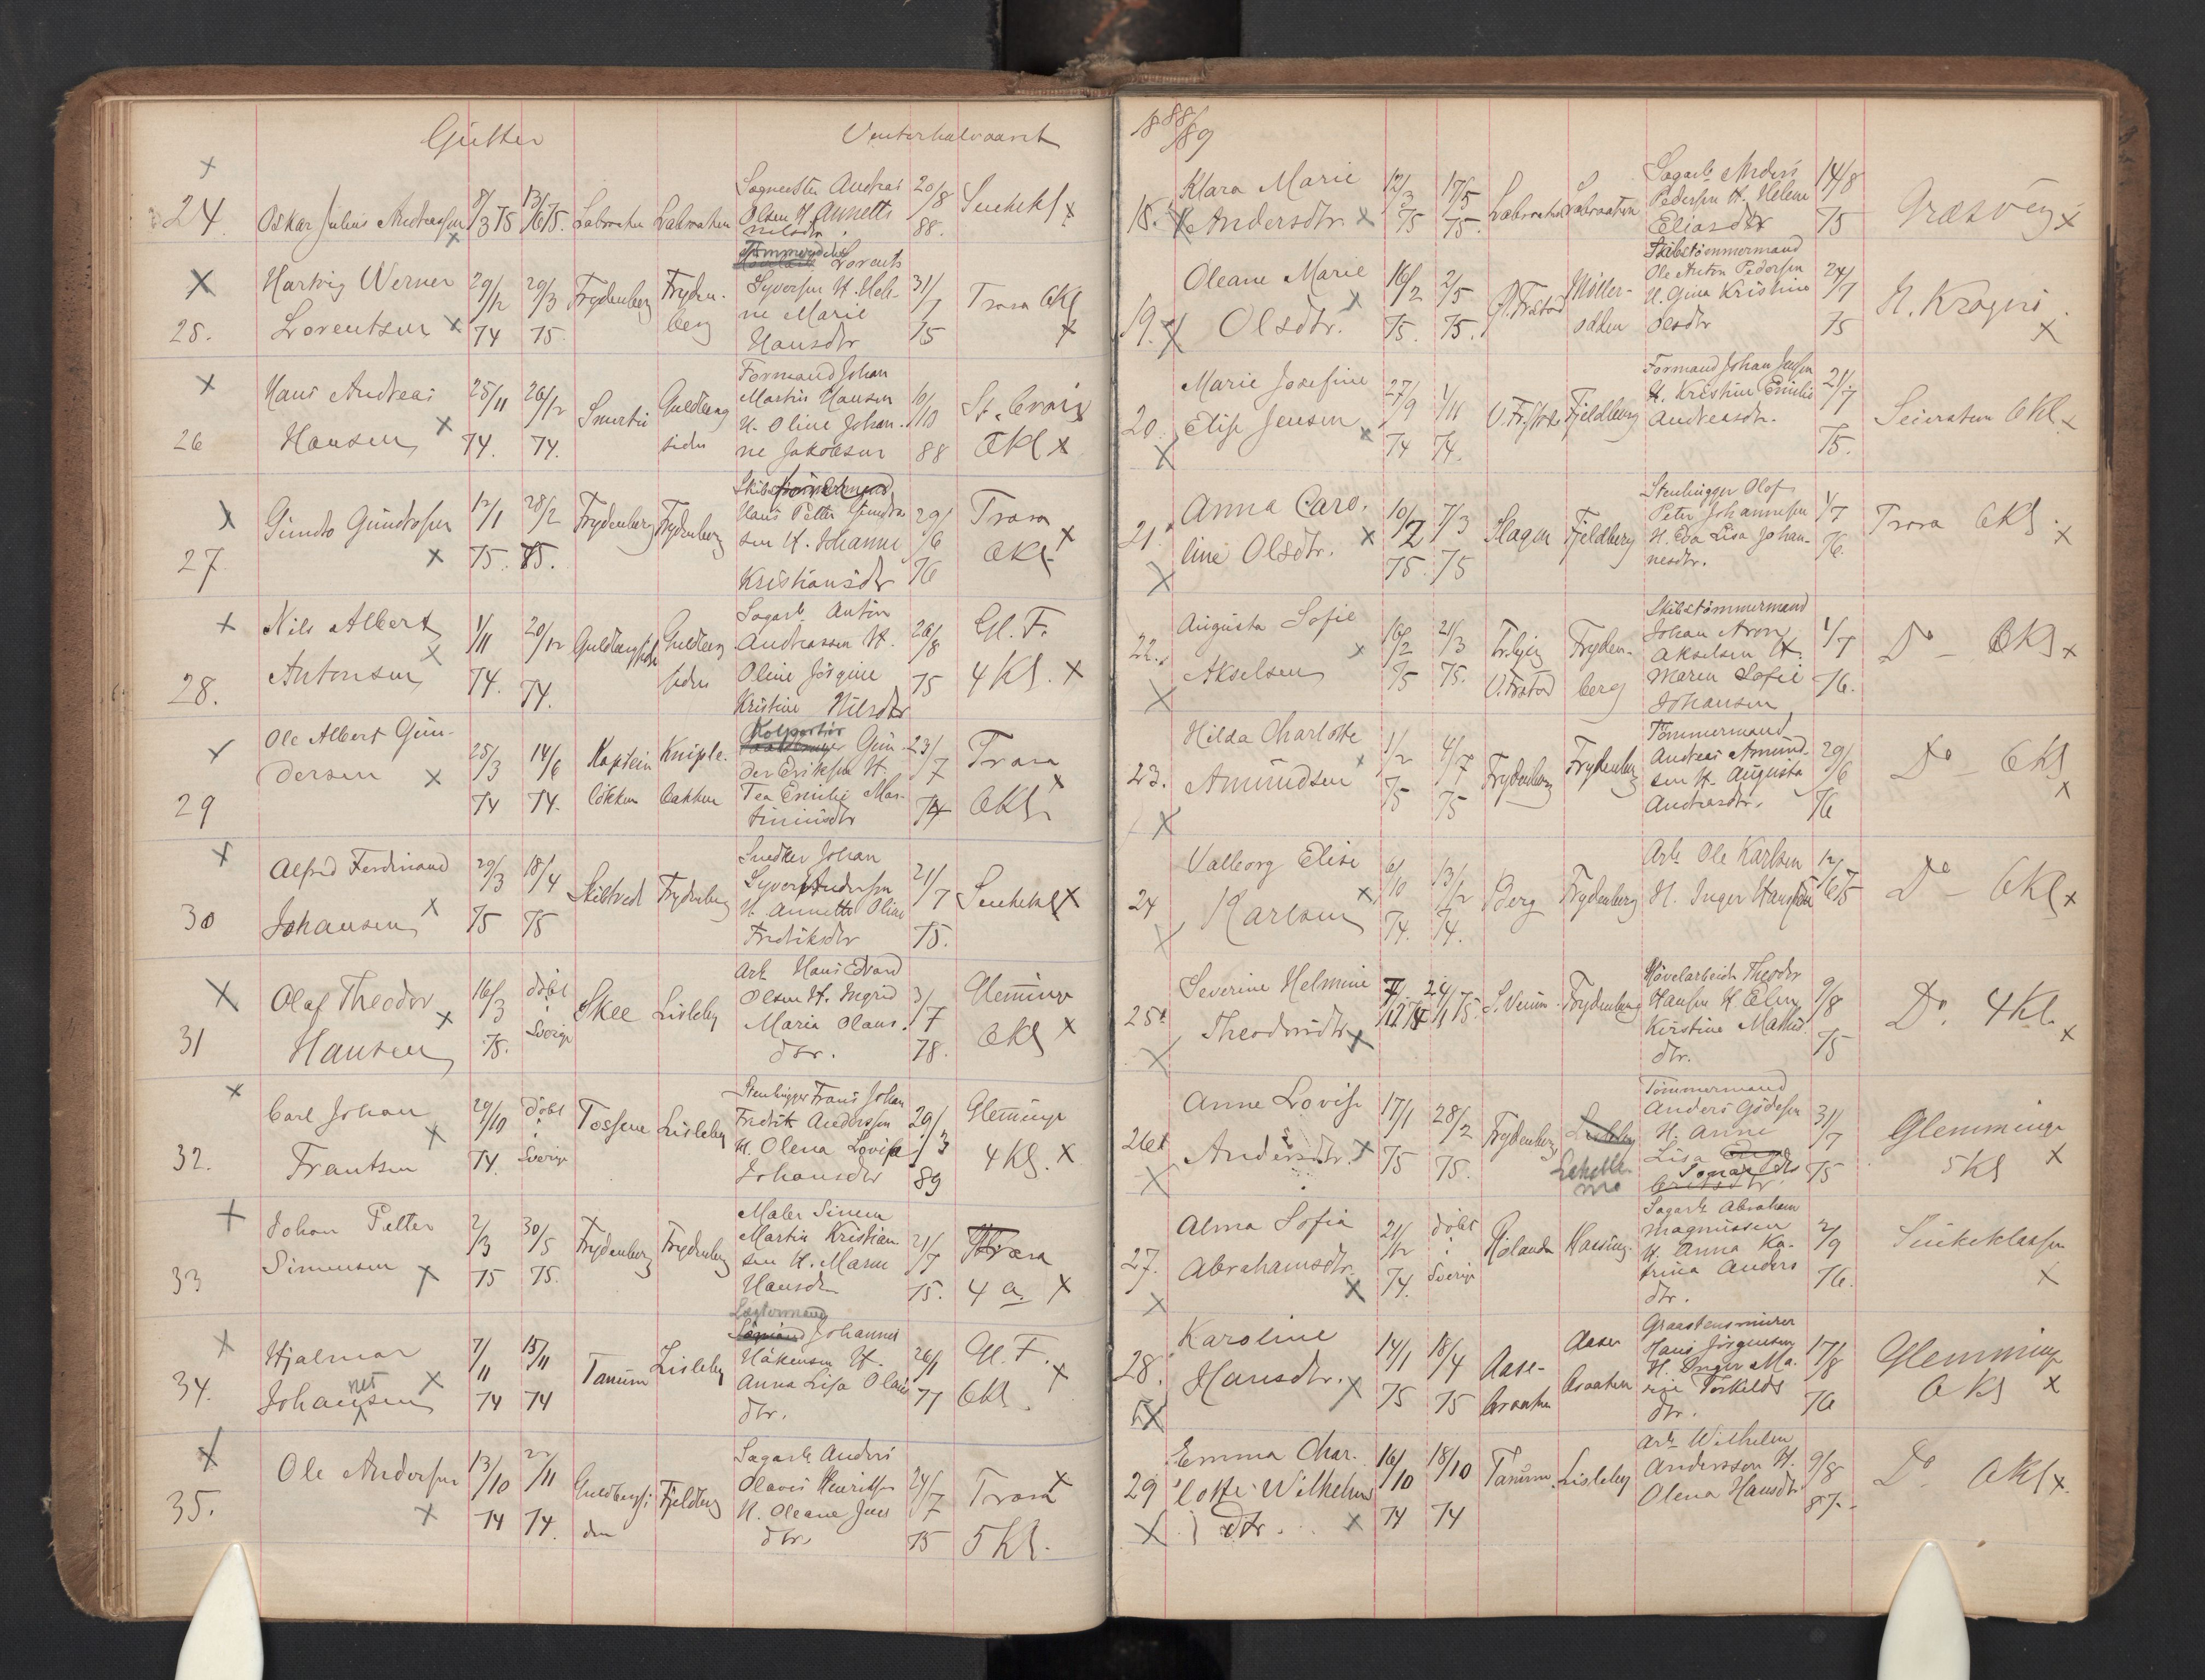 Gutter Vinterhalvaaret
24 Oskar Julius Andreassen 8/3 75 13/6 75. Labraaten Labraaten Sagmester Andreas Olsen H. Annette Nilsdtr. 20/8 88.
25. Hartvig Werner Lorentsen 29/12 74 29/3 75. Frydenberg Frydenberg Lorents Syversen H. Helene Marie Hansdtr 31/7 75 Trara 6Kl
26 Hans Andreas Hansen 25/11 74. 26/12 74. Guldbergsiden Formand Johan Martin Hansen H. Oline Johanne Jakobsen 10/10 88 St. Croix 6Kl
27 Gundo Gundersen 12/1 75. 28/2 75. Frydenberg Frydenberg Hans Petter H. Johanne Kristiansdtr 29/6 76 Trara 6Kl
28. Nils Albert Antonsen 1/11 74. 20/12 74. Guldbergsiden Guldbergsiden Sagarb. Anton Andreassen H. Oline Jörgine Kristine Nilsdtr 26/8 75 Gl. F. 4 Kl.
29 Ole Albert Gundersen 25/3 74 14/6 74. Kaptein lökken Kniplebakken Kolportör Gunder Eriksen H. Tea Emilie Martiniusdtr 23/7 74 Trara 6Kl
30 Alfred Ferdinand Johansen 29/3 75 18/4 75 Skiltved Frydenberg Snedker Johan Syver Andersen H. Annette Oline Fredriksdtr 21/7 75.
31 Olaf Theodor Hansen 16/3 75. döbt i Sverige Skee Lisleby Arb. Hans Edvard Olsen H. Ingrid Maria Olausdtr. 3/7 78. Glemminge 6Kl
32. Carl Johan Frantsen 29/10 74. döbt i Sverige Tossene Lisleby Stenhugger Frans Johan Fredrik Andersson H. Olena Lovisa Johansdtr 29/3 89 Glemminge 4 Kl.
33 Johan Petter Simensen 2/3 75 30/5 75. Frydenberg Frydenberg Maler Simen Martin Kristiansen H. Maren Hansdtr 21/7 75. Trara 4 a.
34. Hjalmar Johannesen 7/11 74 15/11 74 Tanum Lisleby Johannes Håkensen H. Anna Lisa Olausdtr. 26/1 77 Gl. F. 6Kl.
35. Ole Andersen 13/10 74 22/11 74. Guldbergsiden Fjeldberg Sagarb. Anders Olaves Henriksen H. Oleane Jensdtr. 24/7 75 Trara 5 Kl.
1888/89
18. Klara Marie Andersdtr. 12/3 75 17/5 75. Labraaten Labraaten Sagarb. Anders Pedersen H. Helene Eliasdtr 14/8 75 Græsvig
19. Oleane Marie Olsdtr. 16/2 75. 2/5 75. Ö. Frstad Möllerodden Skibstömmermand Ole Anton Pedersen H. Gina Kristine Olsdtr 24/7 75 N. Kragerö
20. Marie Josefine Elise Jensen 27/9 74 1/11 74. Fjeldberg Formand Johan Jensen H. Kristine Emilie Andreasdtr. 21/7 75. Seiersten 6Kl.
21. Anna Caroline Olsdtr. 10/2 75. 7/3 75 Slagen Fjeldberg Stenhugger Olof Peter Johannesen H. Eva Lisa Johannesdtr. 1/7 76. Trara 6Kl.
22. Augusta Sofie Akselsen 16/2 75 21/3 75. V. Frstad Frydenberg Skibstömmermand Johan Aron Akselsen H. Maren Sofie Johansen 1/7 76. Do 6Kl
23. Hilda Charlotte Amundsen 1/2 75 4/7 75 Frydenberg Frydenberg Tömmermand Andreas Amundsen H. Augusta Andreasdtr. 29/6 76 Do 6Kl
24 Valborg Elise Karlsen 6/10 74. 13/12 74. Berg Frydenberg Arb. Ole Karlsen H. Inger Hansdtr 12/6 75 Do 6Kl
25. Severine Helmine Theodorsdtr. Frydenberg Hövelarbeider Theodor Hansen H. Elen Kirstine Mathisdtr. 9/8 75 Do. 4 Kl.
26. Anne Lovise Andersdtr. 17/1 75 28/2 75. Frydenberg Tömmermand Anders H. Anne Lisa 31/7 75 Glemminge 5 Kl
27. Alma Sofia Abrahamsdtr. 21/12 74. döbt i Sverige Sagarb. Abraham Magnussen H. Anna Katrina Andersdtr. 2/9 76.
28. Karoline Hansdtr. 14/1 75 18/4 75 Aasebraaten Aasebraaten Graastensmurer Hans Jörgensen H. Inger Marie Torkildsdtr. 17/8 76 Glemminge 6 Kl
29 Emma Charlotte Wilhelmsdtr. 16/10 74 18/10 74 Tanum Lisleby Arb. Wilhelm Andersson H. Olena Hansdtr 9/8 87. Do. 6Kl